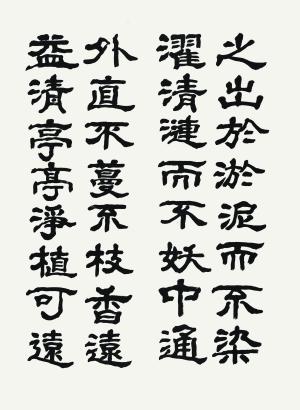 之出於淤泥而不染
濯清漣而不妖中通
外直不蔓不枝香遠
益清亭亭淨植可遠